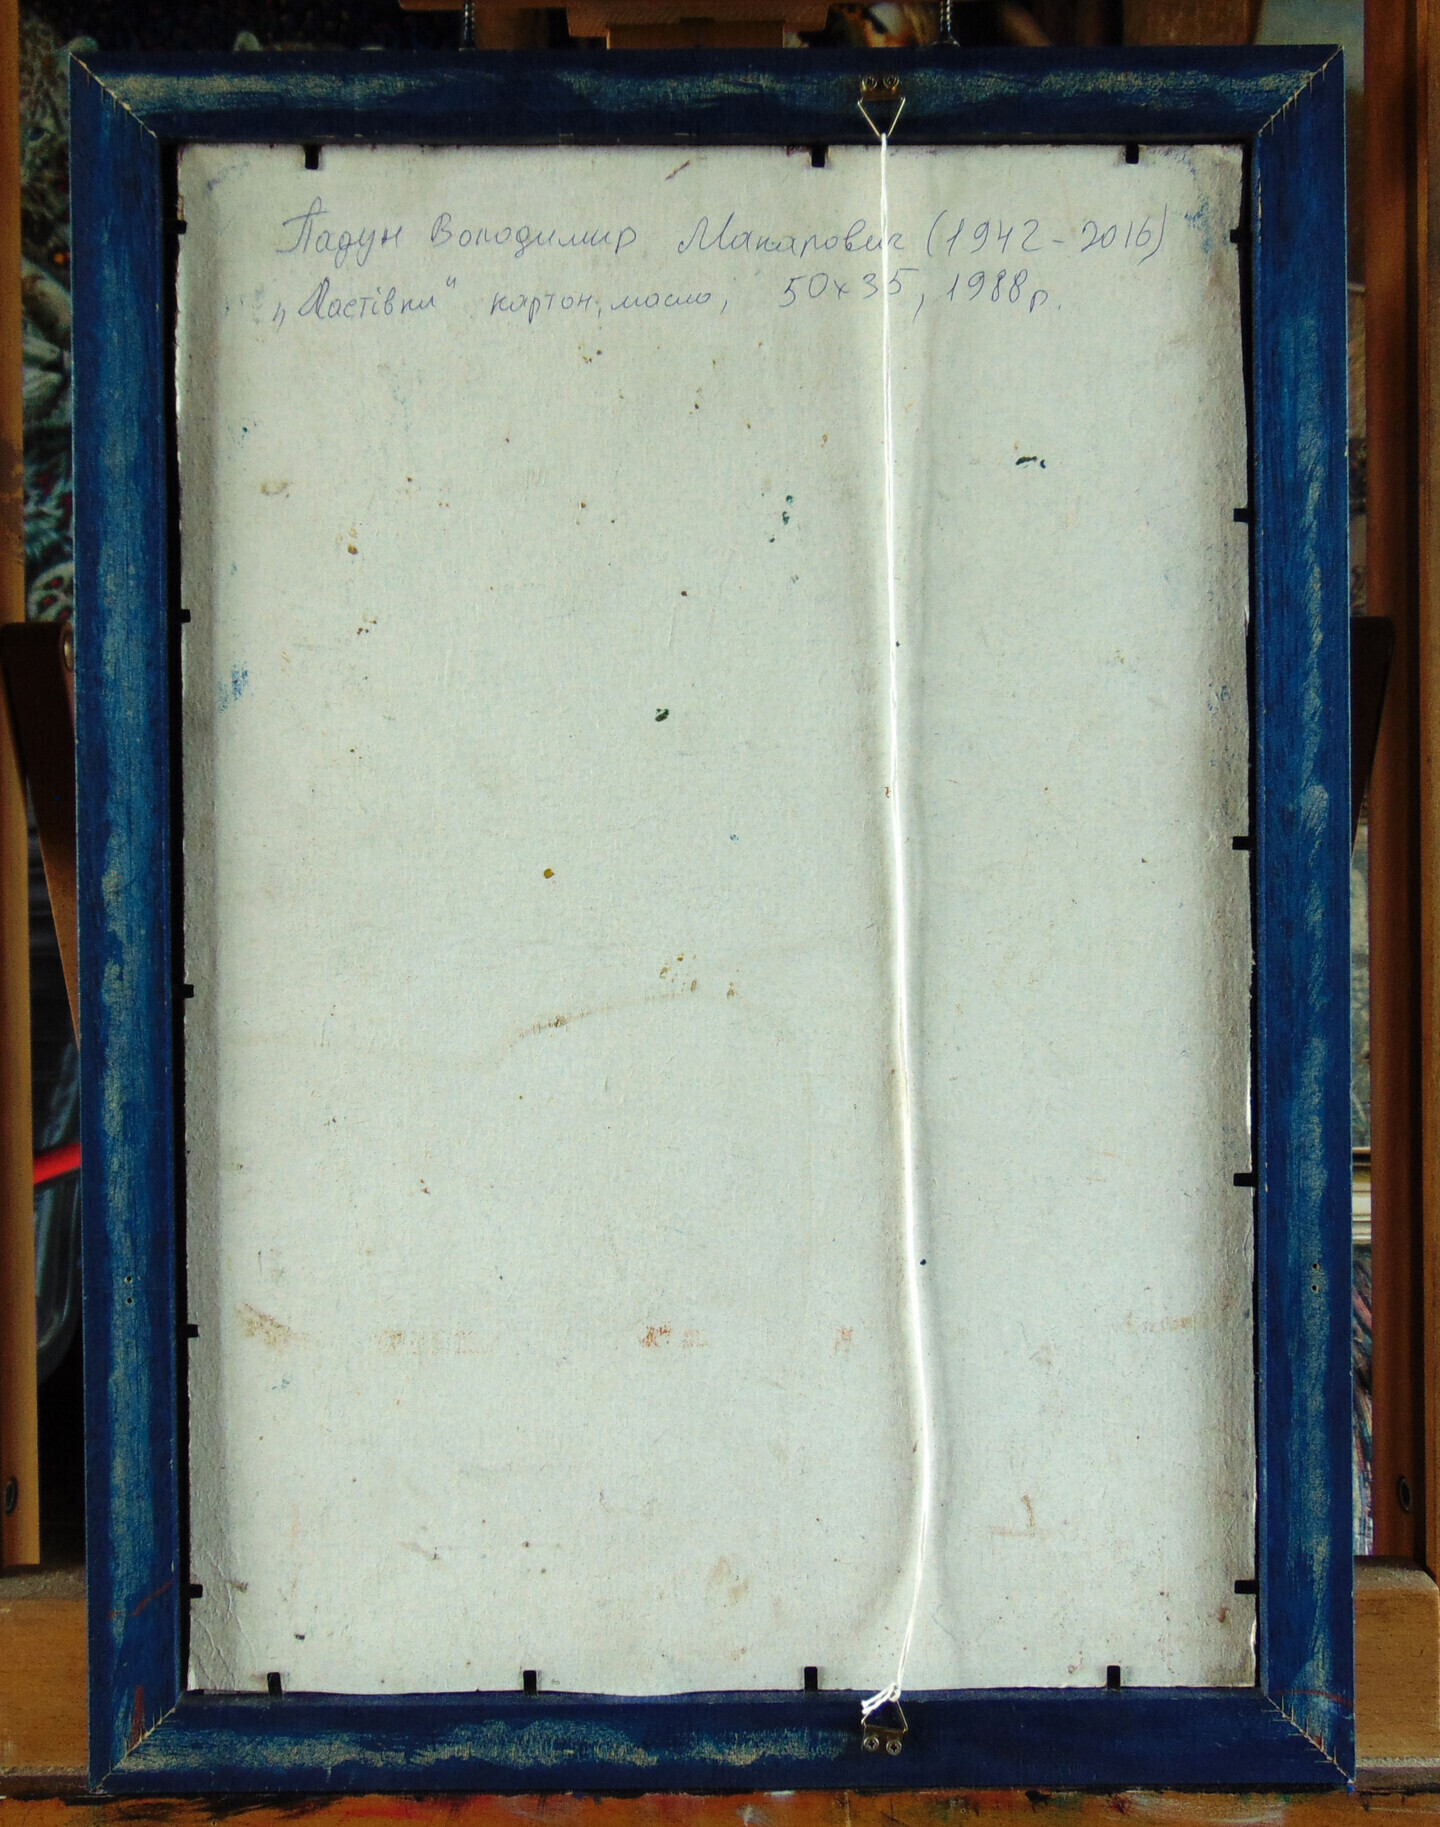 Падун Володимир Макарович (1942-2016)
„Ластівки" картон, масло, 50х35, 1988р.